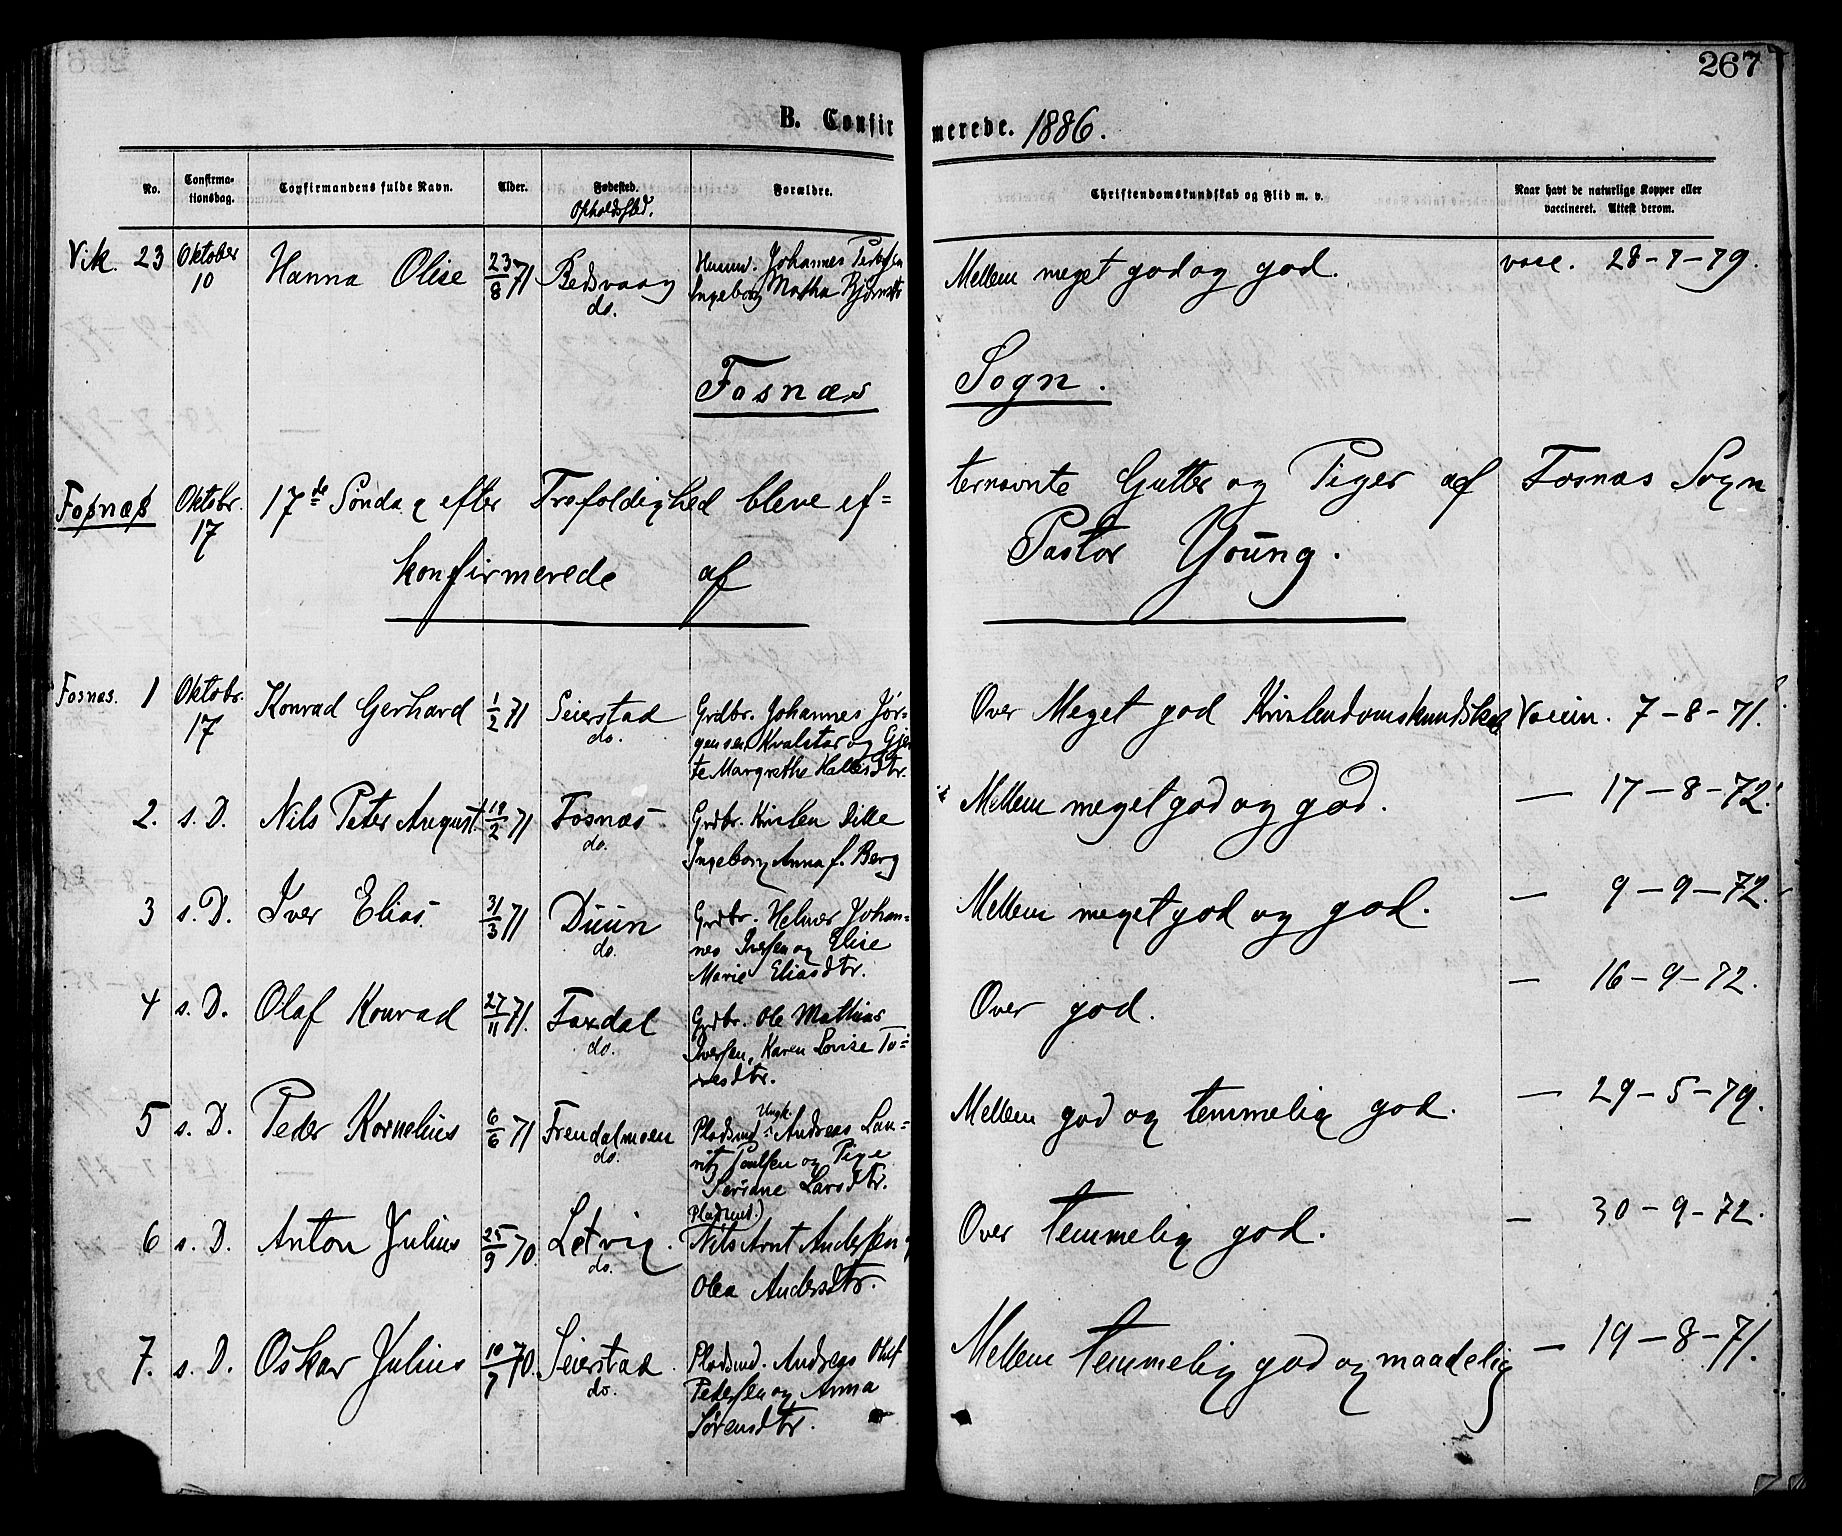 267
B. Confirmerede. 1886.
No. Confirmationsdag. Confirmandens fulde Navn. Alder. Fødested. Opholdssted. Forældre. Christendomskundskab og Flid m. v. Naar havt de naturlige Kopper eller vaccineret. Attest derom.
Vik. 23 Oktober 10 Hanna Olise 23/8 71 Bedsvaag do.
Johannes
Ingeborg Martha
Mellem meget god og god. vacc. 28-7-79.
Fosnæs Sogn.
Fosnæs Oktobr. 17 17de Søndag efter Trefoldighed bleve efternævnte Gutter og Piger af Fosnæs Sogn
konfirmerede af Pastor Young.
Fosnæs. 1 Oktobr. 17 Konrad Gerhard 1/2 71 Seierstad do.
Grdbr. Johannes Jør-
gensen Kvalstar og Gje
te Margrethe
Over Meget god Kristendomskundskab Vaccin. 7-8-71.
2. s. D. Nils Peter August 19/2 71 Fosnæs do.
Grdbr. Kristen Dille
Ingeborg Anna f. Berg
Mellem meget god og god. — 17-8-72.
3 s. D. Iver Elias 31/3 71 Duun do.
Grdbr. Helmer Johan-
nes Iversen og Elise
Marie Eliasdtr.
Mellem meget god og god. — 9-9-72.
4 s. D. Olaf Konrad 27/11 71. Faxdal do.
Grdbr. Ole Mathias
Iversen, Karen Lovise To-
resdtr.
Over god. — 16-9-72.
5 s. D. Peder Kornelius 6/6 71 Frendalmoen do.
Ungk.
Pladsmd. Andreas Lau-
ritz Paulsen og Pige
Seriane Larsdtr.
Mellem god og temmelig god. — 29-5-79.
6 s. D. Anton Julius 25/9 70. Letvig. do.
Pladsmd.
Nils Arnt Andersen
Olea Andersdtr.
Over temmelig god. — 30-9-72.
7. s. D. Oskar Julius 10/7 70. Seierstad. do.
Pladsmd. Andreas Oluf
Petersen og Anna
Sørensdtr.
Mellem temmelig god og maadelig — 19-8-71.